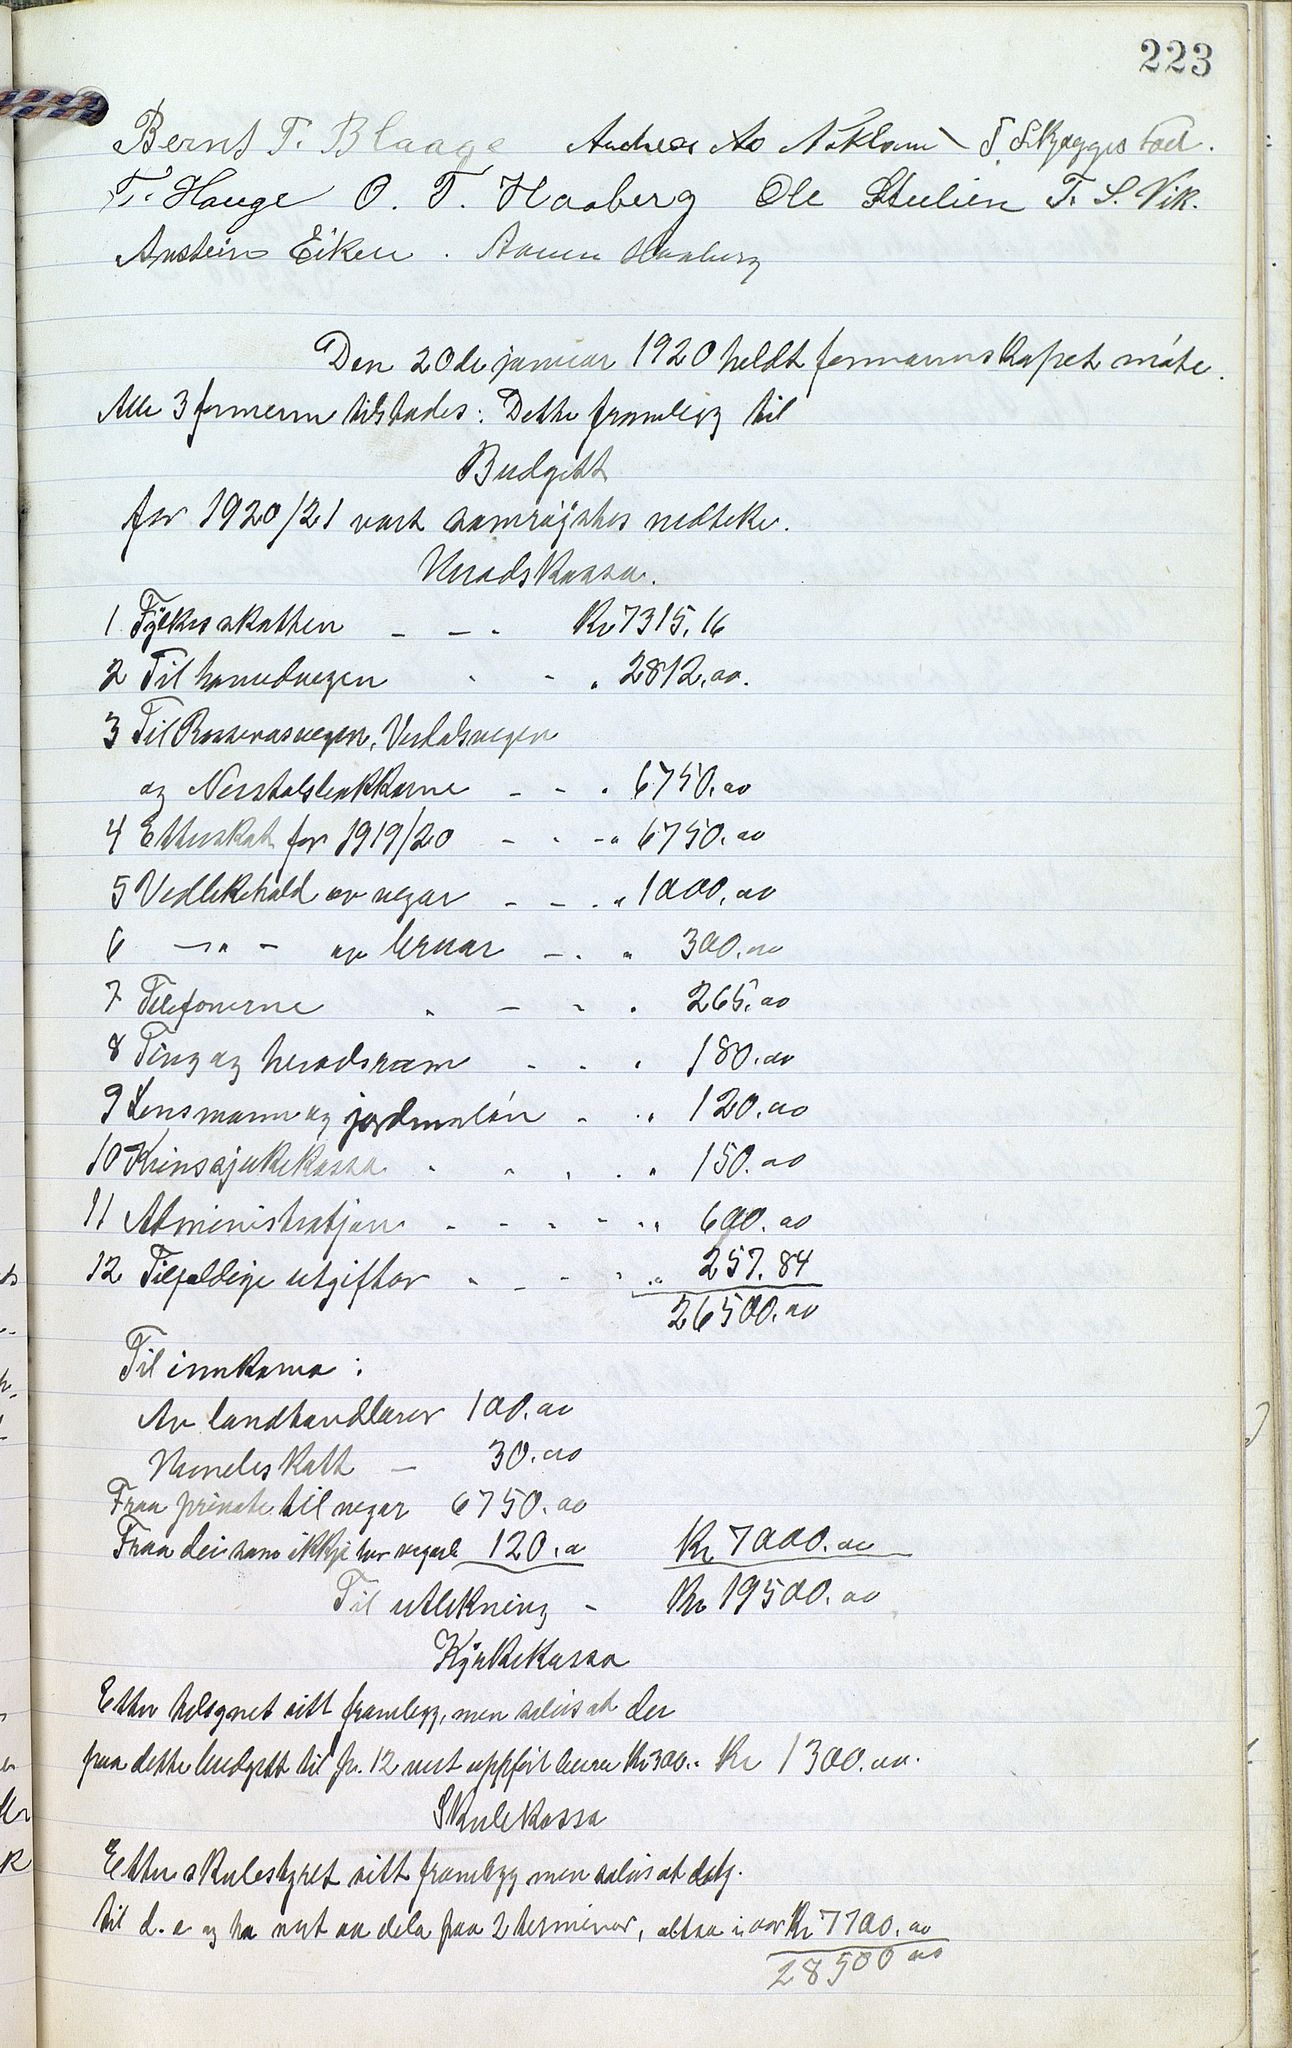 223
Bernt T. Blaage Andreas Ao T. Skjeggestad.
T. Hauge O. T. Haaberg Ole Stulien T. S. Vik.
Anstein Eiken. Haaberg
Den 20de januar 1920 heldt formannskapet møte.
Alle 3 formenn tilstades: Dette framlegg til
Budgett
for 1920/21 vart samrøystes vedteke.
Heradskassa.
1 Fylkesskatten — — - Kr 7315.16
2 Til hovudvegen - - „ 2812.00.
3 Til Rosseraasvegen, Vesdalsvegen
og Nesstølsbakkarne - - „ 6750.00
4 Etterskot for 1919/20 - - - „ 6750.00
5 Vedlikehald av vegar - - - „ 1000.00
6 —„— av bruar - - „ 300.00
7 Telefonerne - - - „ 265.00
8 Ting og heradsrom - - „ 180.00
9 Lensmann og jordmorløn - - „ 120.00
10 Krinssjukekassa - - - - „ 150.00
11 Administrasjon - - - - - „ 600.00
12 Tilfeldige utgiftor - - - - „ 257.84
26500.00
Til innkoma:
Av landhandlarar 100.00
Hundeskatt — 30.00
Fraa private til vegar 6750.00
Fraa dei som ikkje har vegarb 120.00 Kr 7000.00
Til utlikning - Kr 19500.00
Kyrkjekassa
Etter tilsynet sitt framlegg, men soleis at der
paa dette budgett til p. 12 vert uppført berre Kr 300.- Kr 1300.00.
Skulekassa
Etter skulestyret sitt framlegg men soleis at
til d. e og ha vert aa dela paa 2 terminar, altsaa i aar Kr 7700.00
28500 00